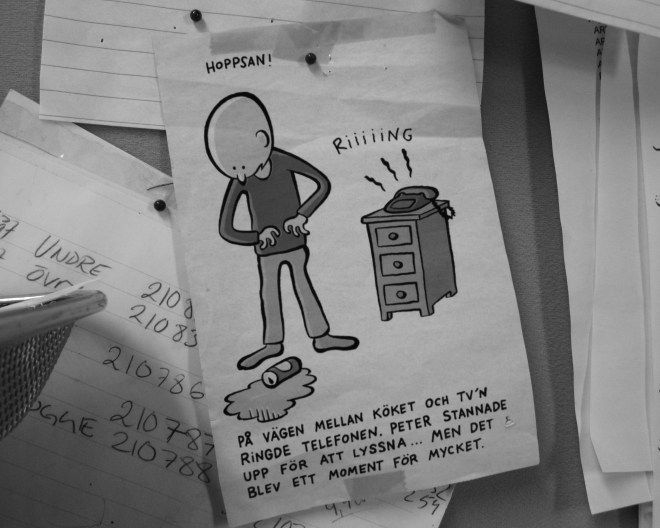 HOPPSAN!
RiiiiiNG
PÅ VÄGEN MELLAN KÖKET OCH TV'N
RINGDE TELEFONEN. PETER STANNADE
UPP FÖR ATT LYSSNA... MEN DET
BLEV ETT MOMENT FÖR MYCKET.
UNDRE
210786
210787
210788